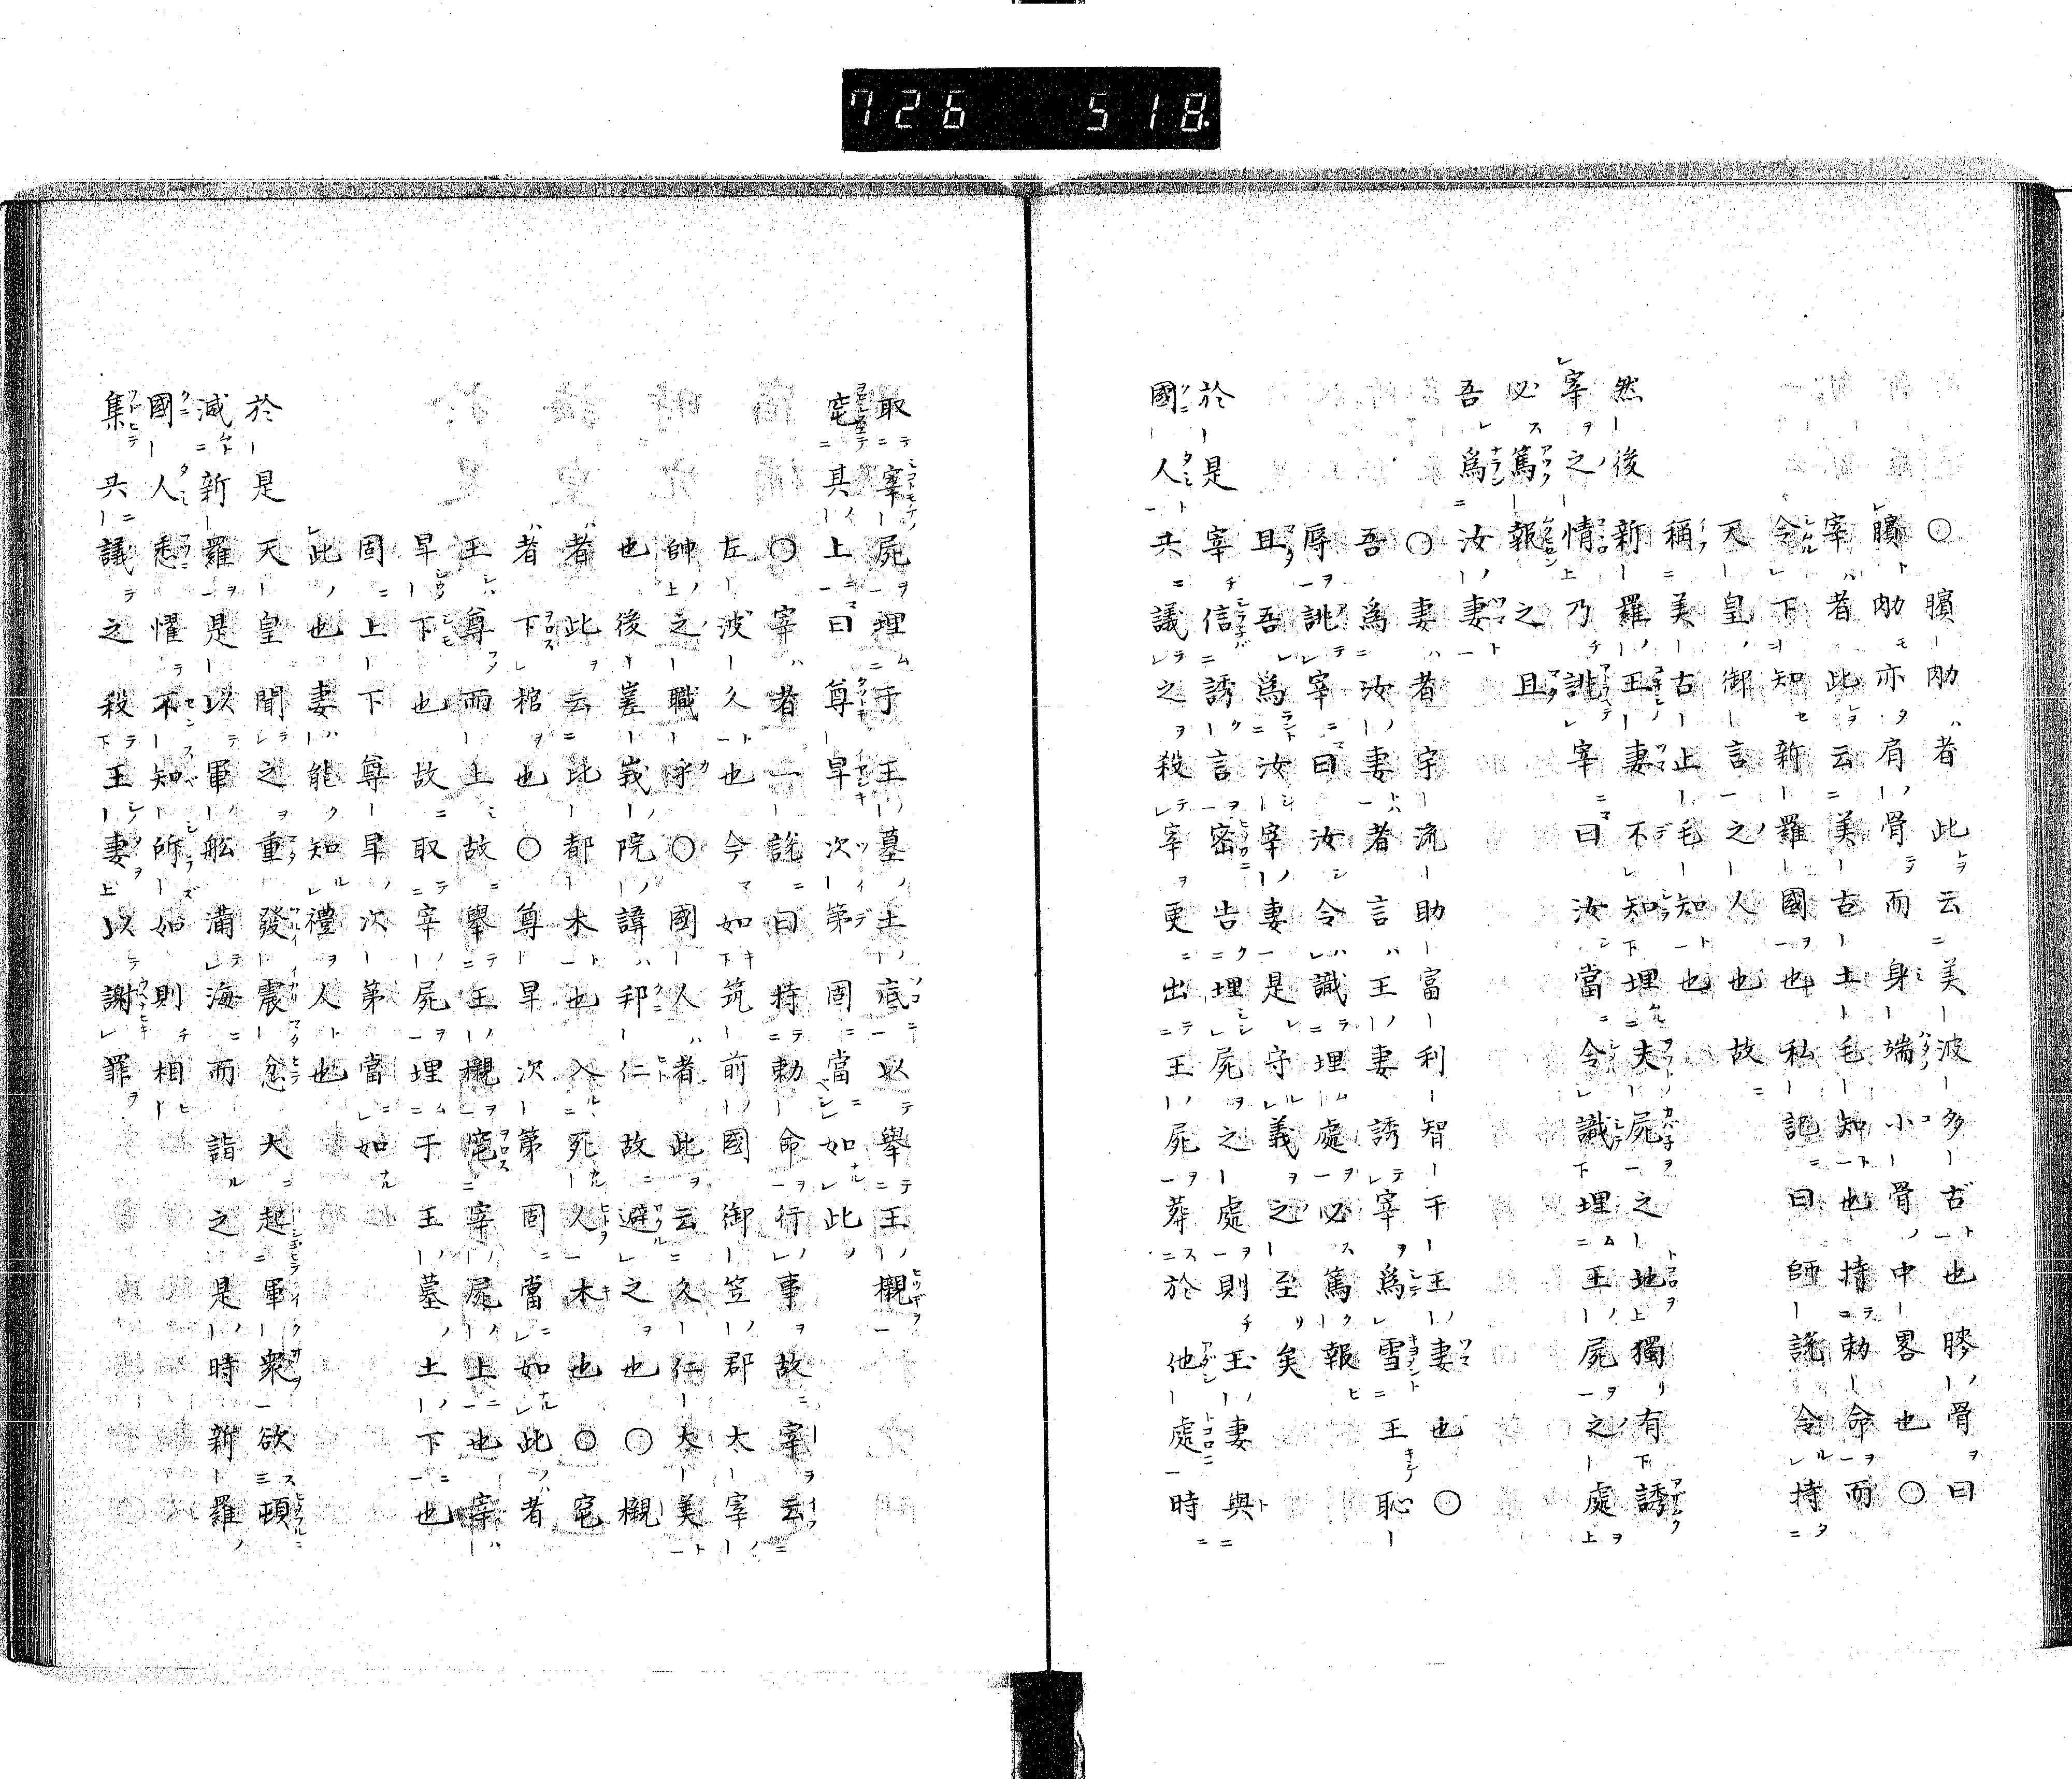 726 518
○臏肕者此云美波多古也膝骨曰
臏肕亦肩骨而身端小骨中畧也○
宰者此云美古土毛知也持勅命而
令下知新羅國也私記曰師説令持
天皇御言之人也故
稱美古止毛知也
然後新羅王妻不知埋夫屍之地獨有誘
宰之情乃誂宰曰汝當令識埋王屍之處
必篤報之且
吾爲汝妻
○妻者宇流助富利智干王妻也○
吾爲汝妻者言王妻誘宰爲雪王恥
辱誂宰曰汝令識埋處必篤報
且吾爲汝宰妻是守義之至矣
於是宰信誘言密告埋屍之處則王妻與
國人共議之殺宰更出王屍葬於他處時
取宰屍埋于王墓土底以舉王櫬
窆其上曰尊卑次第固當如此
○宰者一説曰持勅命行事故宰云
左波久也今如筑前國御笠郡太宰
帥之職呼○國人者此云久仁大美
也後嵳峩院諱邦仁故避之也○櫬
者此云此都木也入死人木也○窆
者下棺也○尊卑次第固當如此者
王尊而土故舉王櫬窆宰屍上也宰
卑下也故取宰屍埋于王墓土下也
固上下尊卑次第當如
此也妻能知禮人也
於是天皇聞之重發震忿大起軍衆欲頓
滅新羅是以軍舩滿海而詣之是時新羅
國人悉懼不知所如則相
集共議之殺王妻以謝罪